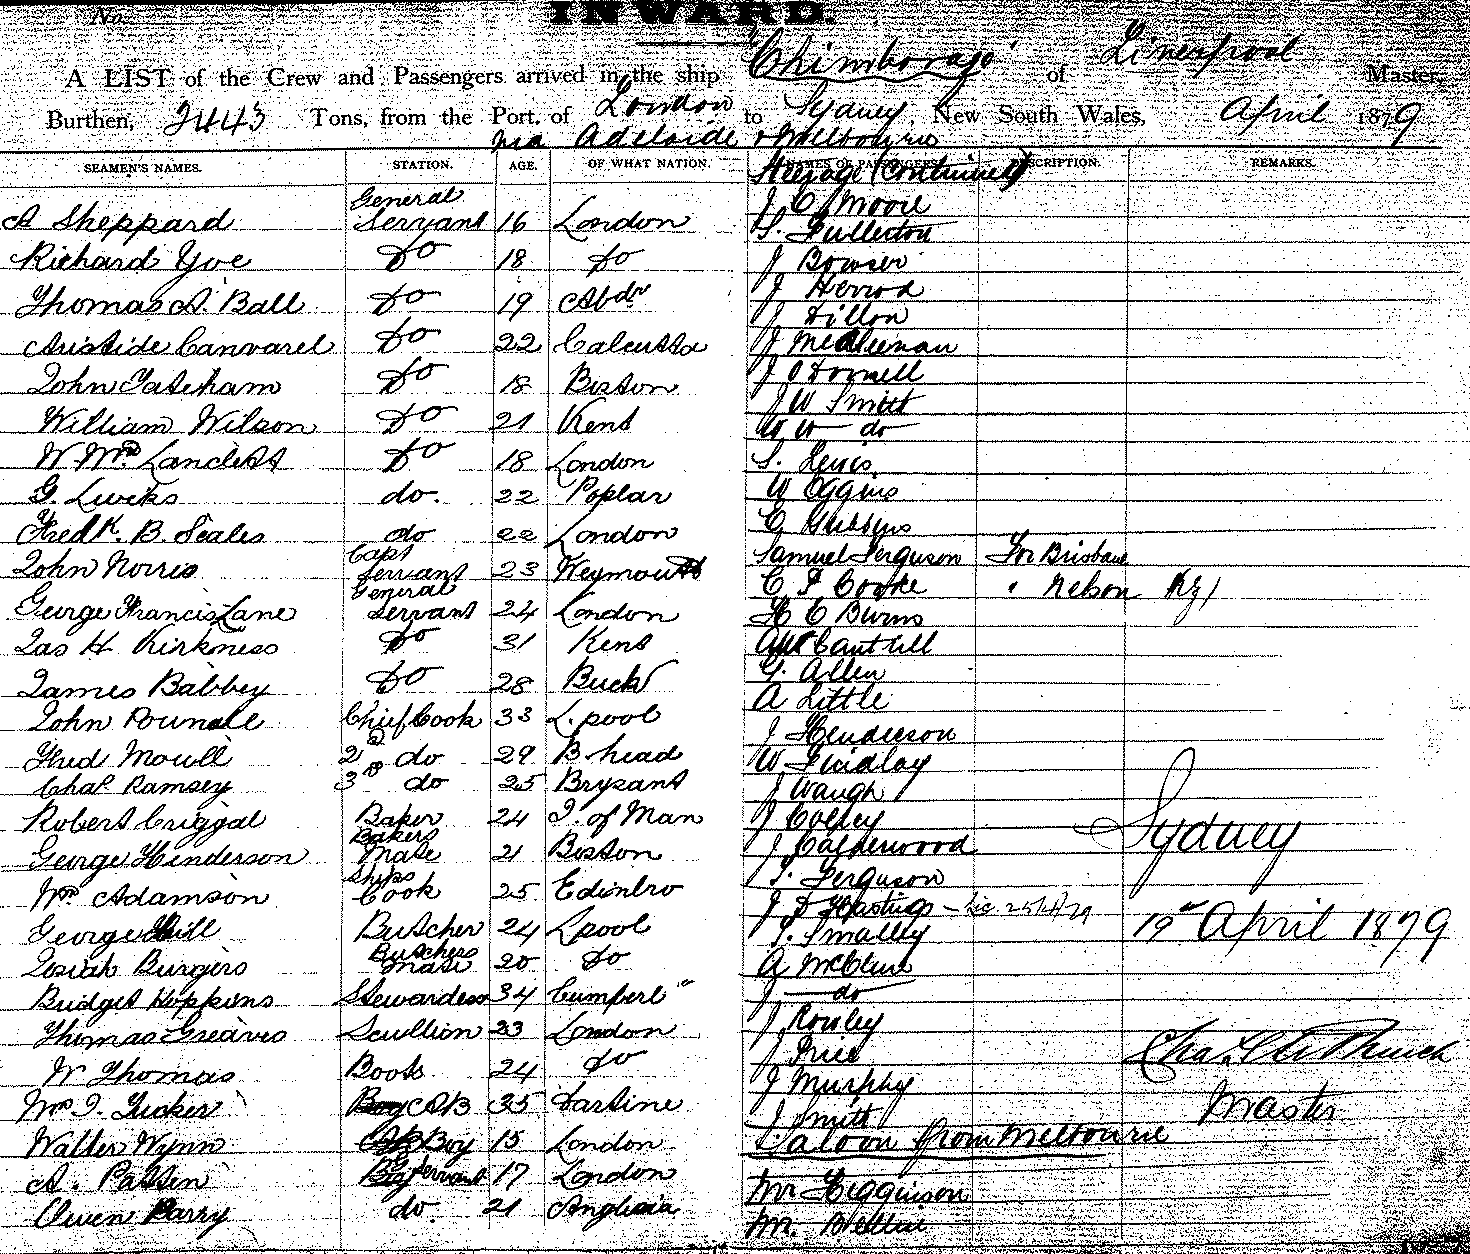 No.
INWARD.
A LIST of the Crew and Passengers arrived in the ship Chimborazo of Liverpool Master,
Burthen, 2443 Tons, from the Port of London to Sydney, New South Wales, April 1879
via Adelaide & Melbourne
SEAMEN'S NAMES. STATION. AGE. OF WHAT NATION. NAMES OF PASSENGERS. DESCRIPTION. REMARKS.
Steerage (Continued)
A Sheppard General Servant 16 London
Richard Yoe Do 18 Do
Thomas A. Ball Do 19 Abdn
Aristide Canvarel Do 22 Calcutta
John Gateham Do 18 Boston
William Wilson Do 21 Kent
W. Wm. Do 18 London
G. Lucks do. 22 Poplar
Fredk. B. Scales do 22 London
John Norris Capt Servant 23 Weymouth
George Francis Lane General Servant 24 London
Jas H. Kirkness Do 31 Kent
James Babbey Do 28 Buck
John Poundle Chief Cook 33 L.pool
Fred Moull 2nd do 29 B.head
Chas Ramsey 3rd do 25
Robert Criggal Baker 24 I. of Man
George Henderson Bakers Mate 21 Boston
Wm Adamson Ships Cook 25 Edinbro
George Hill Butcher 24 Lpool
Josiah Burgers Butchers Mate 20 Do
Bridget Hopkins Stewardess 34 Cumberl"
Thomas Greaves Scullion 23 London
W Thomas Boots 24 do
Wm J. Tucker AB 35
Walter Wynn Boy 15 London
A. Patten Servant 17 London
Owen Parry do. 21 Anglicia
J C Moore
S. Fullerton
J Bowser
J Herrod
J Dillon
J McAleenan
J O Donnell
J W Smith
W W do
S. Lewis
W Oggins
C Gubbyns
Samuel Ferguson For Brisbane
C F Cooke " Nelson NZ)
H C Burns
Canthill
G. Allen
A Little
J Henderson
W Findlay
J Waugh
J Colley
J Catherwood
S. Ferguson
J D Hastings
S. Smalley
A McClure
J do
J Rowley
J Price
J Murphy
J Smith
Saloon from Melbourne
Mr Higginson
Mr. Bellin
Sydney
19th April 1879
Master